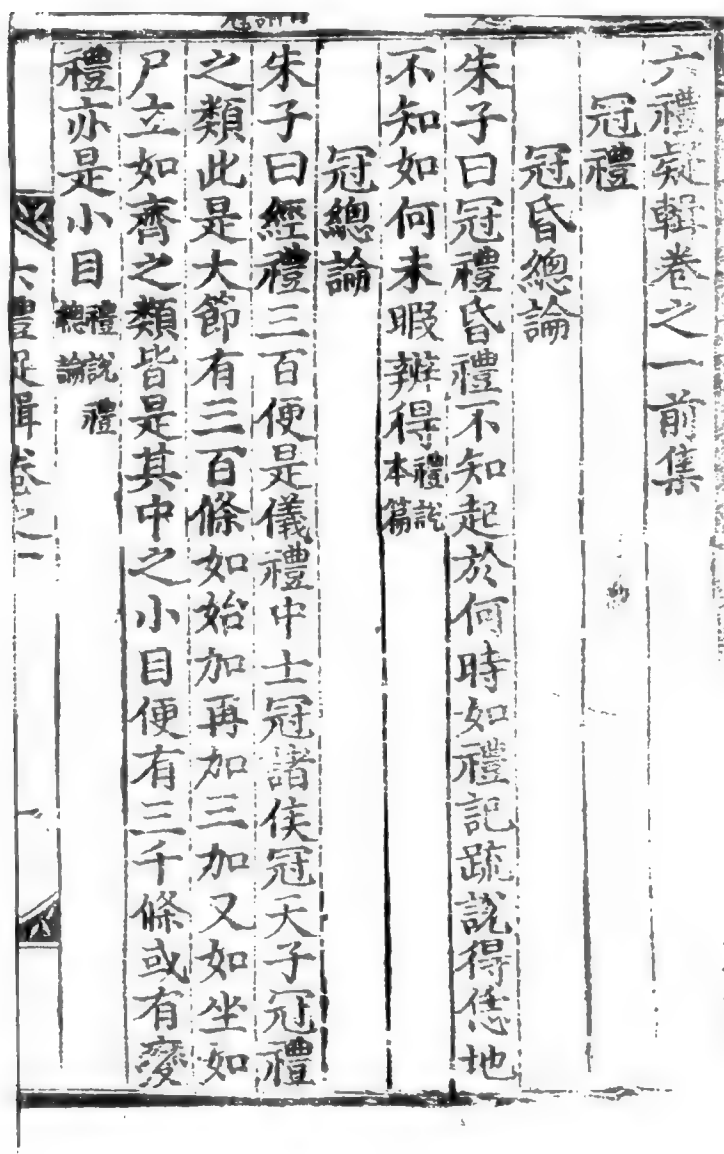 六禮疑輯卷之一前集
冠禮
冠昏總論
朱子曰冠禮昏禮不知起於何時如禮記疏說得恁地
不知如何未暇辨得禮說本篇
冠總論
朱子曰經禮三百便是儀禮中士冠諸侯冠天子冠禮
之類此是大節有三百條如始加再加三加又如坐如
尸立如齊之類皆是其中之小目便有三千條或有變
禮亦是小目禮說禮總論
六禮疑輯卷之一
一